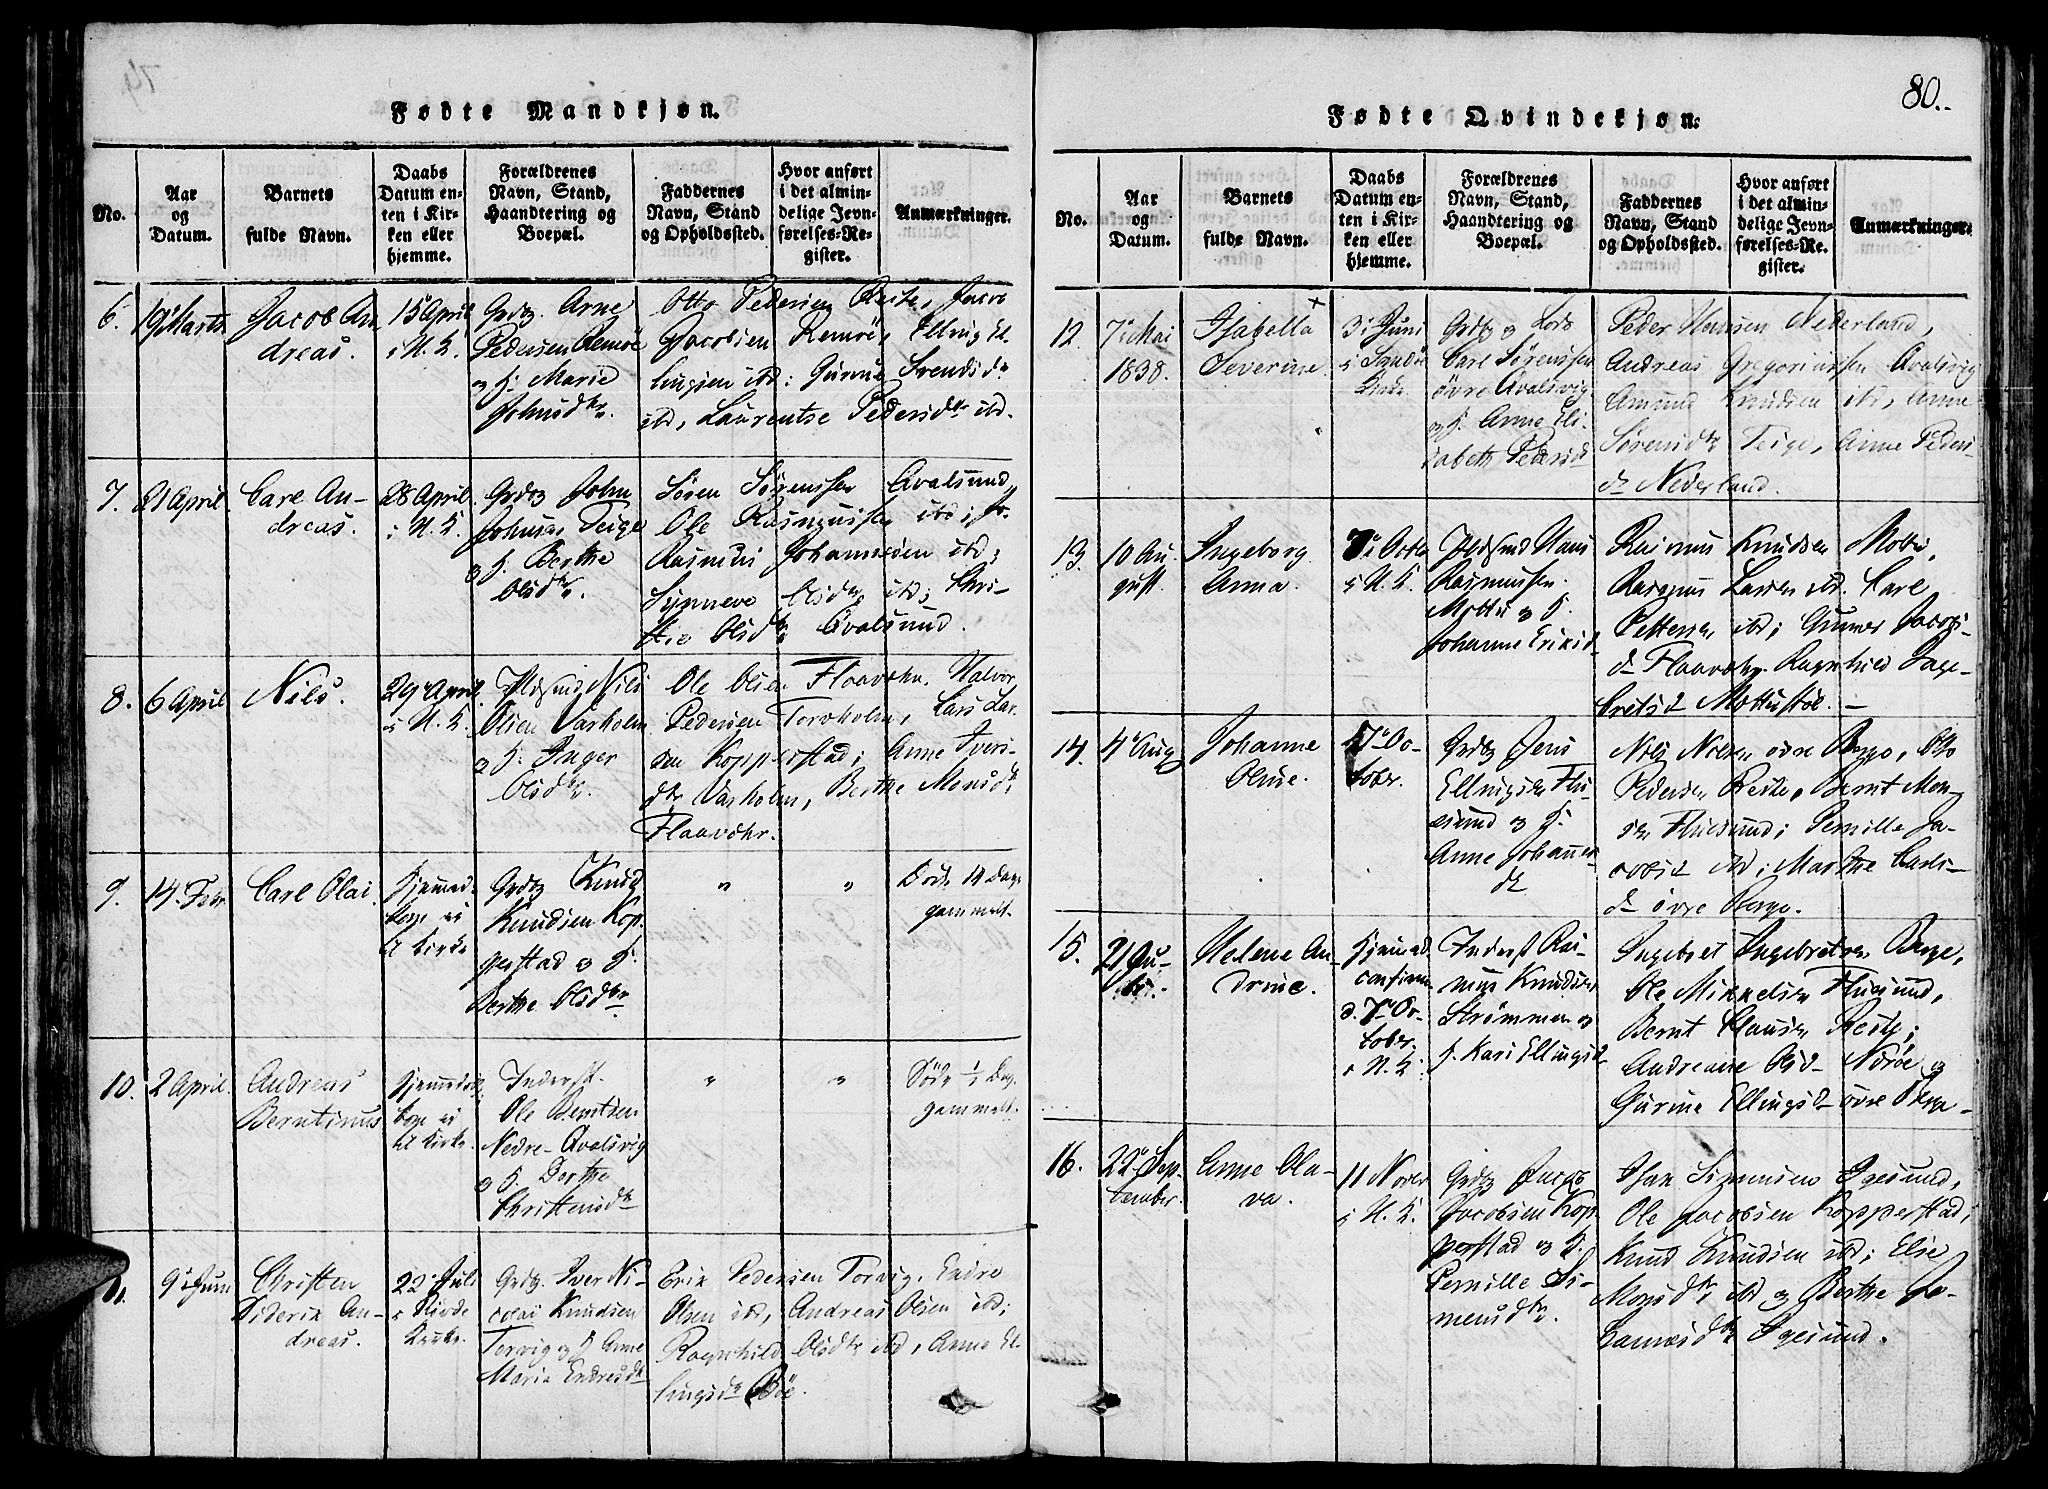 80.
Fødte Mandkjøn.
No.
Aar og Datum.
Barnets fulde Navn.
Daabs Datum enten i Kirken eller hjemme.
Forældrenes Navn, Stand, Haandtering og Boepæl.
Faddernes Navn, Stand og Opholdssted.
Hvor anført i det almindelige Jevnførelses-Register.
Anmærkninger.
6.
19 Marts
Jacob An
dreas.
15 April
i H. K.
Grdbg. Arne
Pedersen Remöe
og H: Marie
Johnsdtr.
Otto Pedersen Reite, Jacob
Jacobsen Remöe, Elling El
lingsen ibd: Gurine Svendsdr
ibd, Laurentse Pedersdtr ibd.
7.
21 April
Carl An-
dreas.
28 April
i H. K.
Grdbg John
Johnsen Teige
og H. Berthe
Olsdtr.
Sören Sörensen Qvalsund,
Ole Rasmussen ibd; 
Rasmus Johannesen ibd;
Synneve Olsdtr ibd; Chri-
Olsdtr Qvalsund.
8.
6 April
Nils.
29 April
i H. K.
Huusmd Nils
Olsen Varholm
og H: Inger
Olsdtr.
Ole Olsen Flaavähr. Halvor
Pedersen Torvholm, Lars Lar
sen Kopperstad; Anne Ivers-
dtr Varholm, Berthe Monsdtr
Flaavähr.
9.
14 Febr
Carl Olai.
hjemmed.
kom ei
til Kirke
Grdbg Knud
Knudsen Kop
perstad og H.
Berthe Olsdtr.
"
"
Döde 14 Dage
gammelt.
10.
2 April.
Andreas
Berntinus
hjemmed.
kom ei
til Kirke
Inderst
Ole Berntsen
Nedre-Qvalsvig
og H. Berthe
Christensdtr
"
"
Döde 1/2 Dag.
gammelt.
11.
9 Juni
Christen
Diderik An-
dreas.
22 Juli
i Rövde
Kirke.
Grdbg. Iver Ni-
colai Knudsen
Torvig og H Anne
Maria Endresdtr
Erik Pedersen Torvig. Endre
Olsen ibd, Andreas Olsen ibd;
Ragnhild Olsdtr ibd, Anne El
lingsdtr Böe.
Fødte Qvindekjøn.
No.
Aar og Datum.
Barnets fulde Navn.
Daabs Datum enten i Kirken eller hjemme.
Forældrenes Navn, Stand, Haandtering og Boepæl.
Faddernes Navn, Stand og Opholdssted.
Hvor anført i det almindelige Jevnførelses-Register.
Anmærkninger.
12.
7 Mai
1838.
Isabella
Severine
3 Juni
i Sandö
Kirke.
Grdbg og Lods
Carl Sörenssen
övre Qvalsvig
og H. Anne Eli
sabeth Pedersd
Peder Hansen Nederland,
Andreas Gregoriussen Qvalsvig
Amund Knudsen ibd, Anne
Sörensdtr Teige, Anne Peders
dr Nederland.
13.
10 Au-
gust.
Ingeborg
Anna.
7 Octbr
i H. K.
Huusmd Hans
Rasmussen
Möltu og H.
Johanne Eriksd
Rasmus Knudsen Möltu,
Rasmus Larsen ibd. Carl
Pettersen ibd; Gunner Jacobs-
dr Flaavähr. Ragnhild Inge-
bretsd Möltustöl.
14.
4 Aug
Johanne
Oline.
7 Oc-
tober.
Grdbg Jens
Ellingsen Flu-
sund og H.
Anne Johannes-
dr
Nils Nilsen övre Berge, Otto
Pedersen Reite, Bernt Mon-
sen Fluesund; Pernille Ja-
cobsd ibd; Marthe Carls-
dr övre Berge.
15.
21 Ju-
Helene An-
drine.
hjemmed
confirme
d. 7 Oc-
tober
i H. K.
Inderst Ras-
mus Knudsen
Strömmen og
H. Kari Ellingsd
Ingebret Ingebretsen Berge,
Ole Mikkelsen Flusund,
Bernt Clausen Reite;
Andreane Olsd Naröe og
Gurine Ellingsd övre Berge
16.
22 Sep-
tember.
Anne Ola-
va.
11 Novbr
i H. K.
Grdbg Jacob
Jacobsen Kop
perstad og H.
Pernille Si-
mensdtr.
Isak Simensen Igesund,
Ole Jacobsen Kopperstad,
Knud Knudsen ibd; Else
Monsdtr ibd og Berthe Jo-
hannesdtr Igesund.